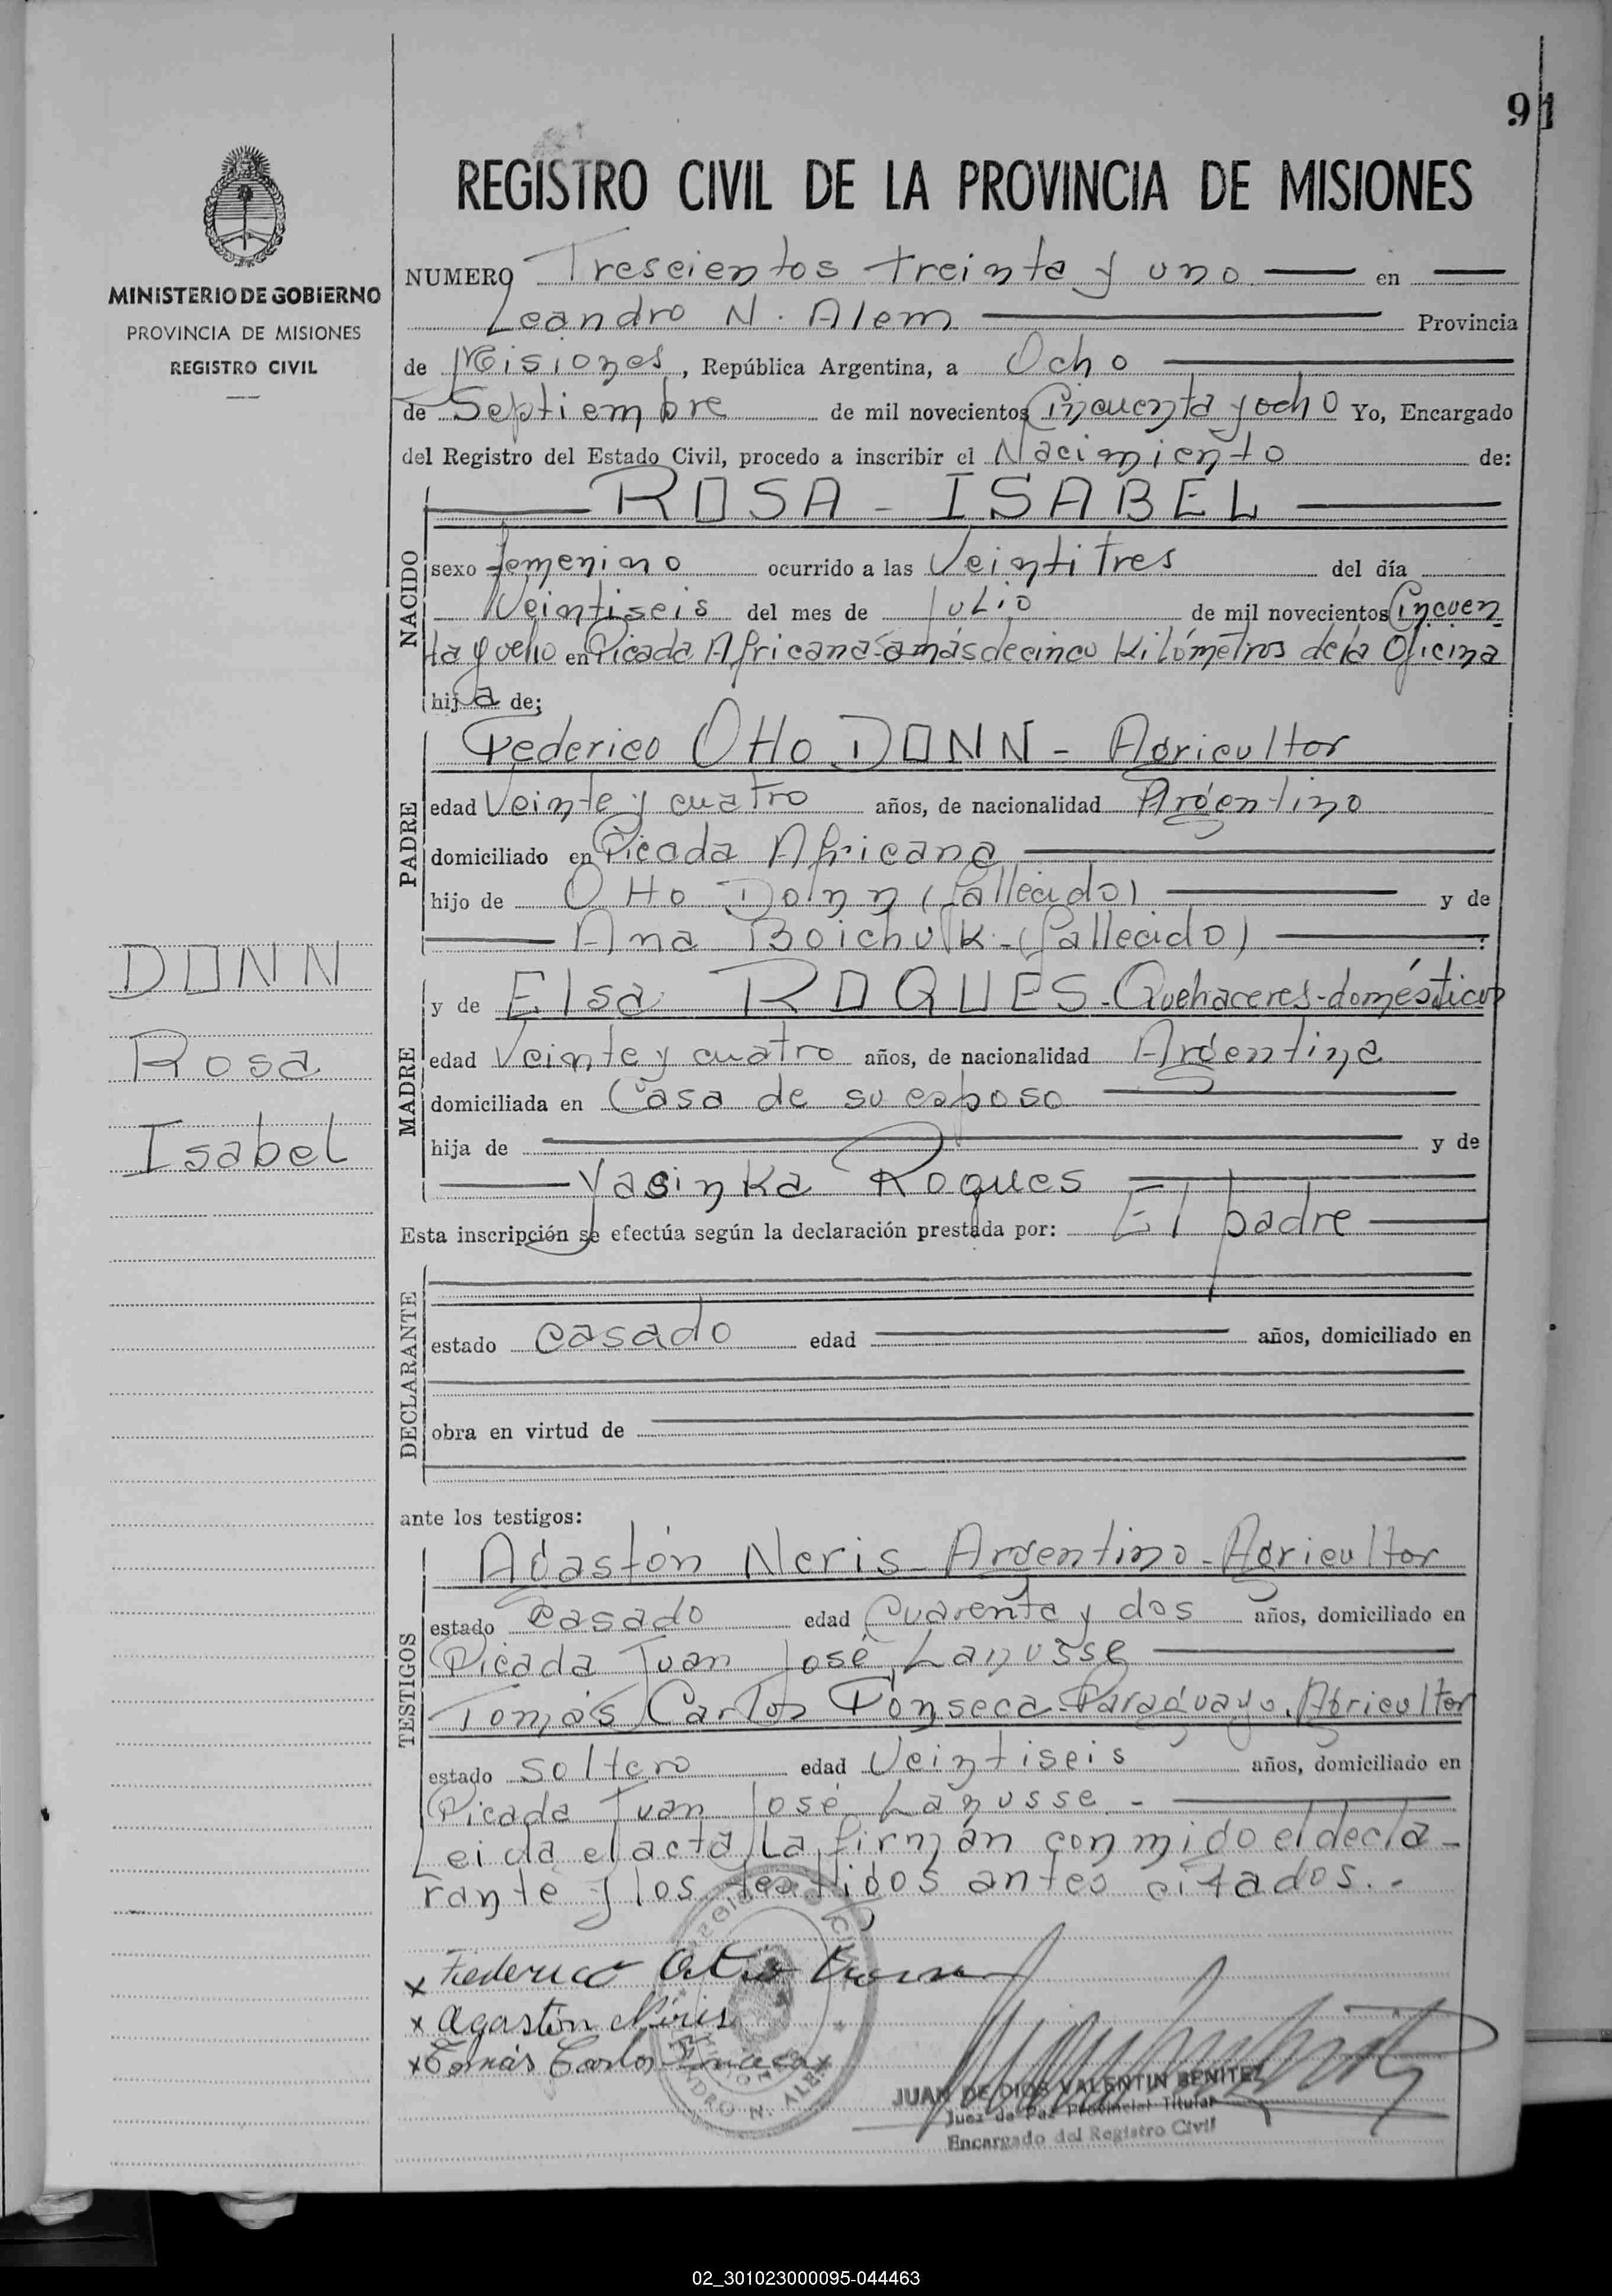 91
REGISTRO CIVIL DE LA PROVINCIA DE MISIONES
MINISTERIO DE GOBIERNO
PROVINCIA DE MISIONES
REGISTRO CIVIL
NUMERO Trescientos treinta y uno en
Leandro N. Alem Provincia
de Misiones, República Argentina, a Ocho
de Septiembre de mil novecientos Cincuenta y ocho Yo, Encargado
del Registro del Estado Civil, procedo a inscribir el Nacimiento de:
ROSA - ISABEL
NACIDO
sexo femenino ocurrido a las Veintitres del día
Veintiseis del mes de Julio de mil novecientos Cincuen
ta y ocho en Picada Africana a más de cinco Kilómetros de la Oficina
hija de;
PADRE
Federico Otto DONN - Agricultor
edad Veinte y cuatro años, de nacionalidad Argentino
domiciliado en Picada Africana
hijo de Otto Donn (fallecido) y de
Ana Boichuk - (fallecido)
DONN
Rosa
Isabel
MADRE
y de Elsa ROQUES - Quehaceres - domésticos
edad Veinte y cuatro años, de nacionalidad Argentina
domiciliada en Casa de su esposo
hija de y de
Yasinka Roques
Esta inscripción se efectúa según la declaración prestada por: El padre
DECLARANTE
estado casado edad años, domiciliado en
obra en virtud de
ante los testigos:
TESTIGOS
Agastón Neris - Argentino - Agricultor
estado Casado edad Cuarenta y dos años, domiciliado en
Picada Juan José Lanusse
Tomás Carlos Fonseca - Paraguayo. Agricultor
estado soltero edad Veintiseis años, domiciliado en
Picada Juan José Lanusse -
Leida el acta la firman conmigo el decla-
rante y los testigos antes citados. -
x Federico Otto Donn
x Agastón Neris
x Tomás Carlos Fonseca
REGISTRO CIVIL
MISIONES
LEANDRO N. ALEM
JUAN DE DIOS VALENTIN BENITEZ
Juez de Paz Provincial Titular
Encargado del Registro Civil
02_301023000095-044463